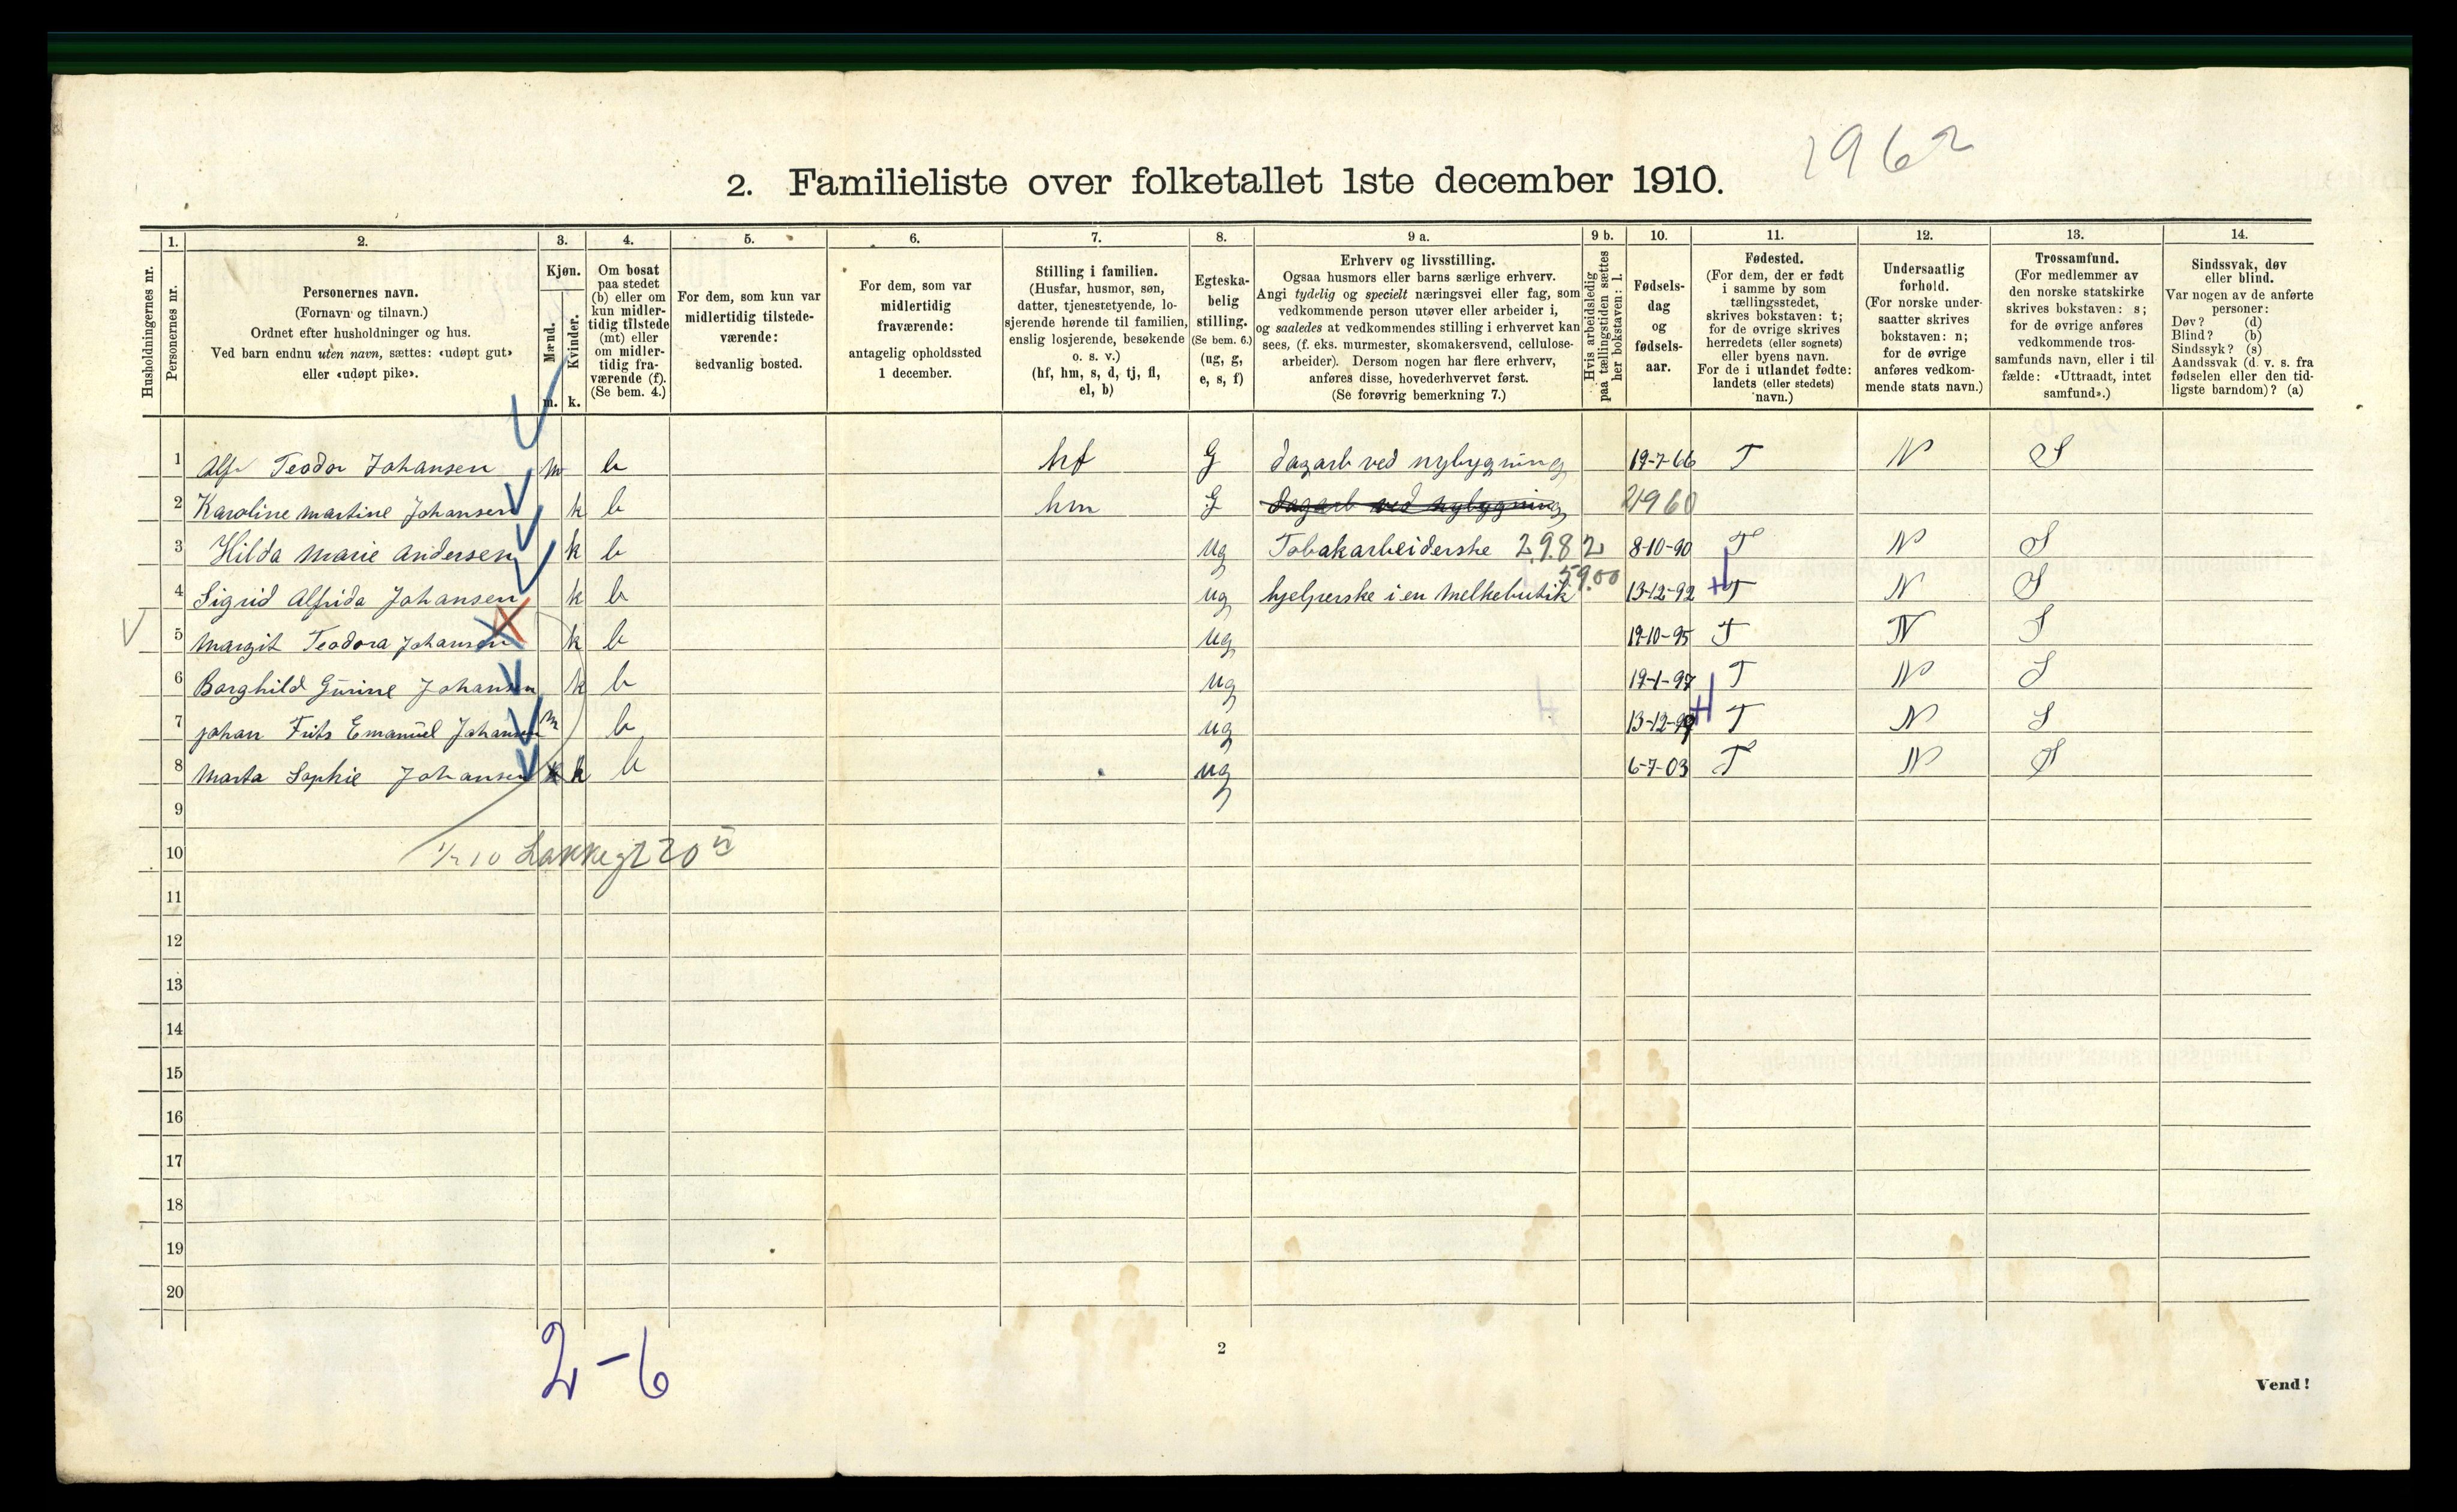 1962
2. Familieliste over folketallet 1ste december 1910.
Husholdningernes nr.
1. Personernes nr.
2. Personernes navn. (Fornavn og tilnavn.) Ordnet efter husholdninger og hus. Ved barn endnu uten navn, sættes: «udøpt gut» eller «udøpt pike».
3. Kjøn. Mænd. m. Kvinder. k.
4. Om bosat paa stedet (b) eller om kun midlertidig tilstede (mt) eller om midlertidig fraværende (f). (Se bem. 4.)
5. For dem, som kun var midlertidig tilstedeværende: sedvanlig bosted.
6. For dem, som var midlertidig fraværende: antagelig opholdssted 1 december.
7. Stilling i familien. (Husfar, husmor, søn, datter, tjenestetyende, losjerende hørende til familien, enslig losjerende, besøkende o. s. v.) (hf, hm, s, d, tj, fl, el, b)
8. Egteskabelig stilling. (Se bem. 6.) (ug, g, e, s, f)
9 a. Erhverv og livsstilling. Ogsaa husmors eller barns særlige erhverv. Angi tydelig og specielt næringsvei eller fag, som vedkommende person utøver eller arbeider i, og saaledes at vedkommendes stilling i erhvervet kan sees, (f. eks. murmester, skomakersvend, cellulosearbeider). Dersom nogen har flere erhverv, anføres disse, hovederhvervet først. (Se forøvrig bemerkning 7.)
9 b. Hvis arbeidsledig paa tællingstiden sættes her bokstaven: l.
10. Fødselsdag og fødselsaar.
11. Fødested. (For dem, der er født i samme by som tællingsstedet, skrives bokstaven: t; for de øvrige skrives herredets (eller sognets) eller byens navn. For de i utlandet fødte: landets (eller stedets) navn.)
12. Undersaatlig forhold. (For norske undersaatter skrives bokstaven: n; for de øvrige anføres vedkommende stats navn.)
13. Trossamfund. (For medlemmer av den norske statskirke skrives bokstaven: s; for de øvrige anføres vedkommende trossamfunds navn, eller i tilfælde: «Uttraadt, intet samfund».)
14. Sindssvak, døv eller blind. Var nogen av de anførte personer: Døv? (d) Blind? (b) Sindssyk? (s) Aandssvak (d. v. s. fra fødselen eller den tidligste barndom)? (a)
1 Alf Teodor Johansen m b hf G dagarb ved nybygning 19-7-66 T N S
2 Karoline Martine Johansen k b hm G dagarb ved nybygning 21960
3 Hilda Marie Andersen k b ug Tobakarbeiderske 2982 8-10-90 T N S
4 Sigrid Alfrida Johansen k b ug hjelperske i en melkebutik 5900 13-12-92 T N S
5 Margit Teodora Johansen k b ug 19-10-95 T N S
6 Borghild Gurine Johansen k b ug 19-1-97 T N S
7 Johan Frits Emanuel Johansen m b ug 13-12-99 T N S
8 Marta Sophie Johansen k b ug 6-7-03 T N S
9
10 Lakkegt 20
11
12
13
14
15
16
17
18
19
20
2-6
2
Vend!